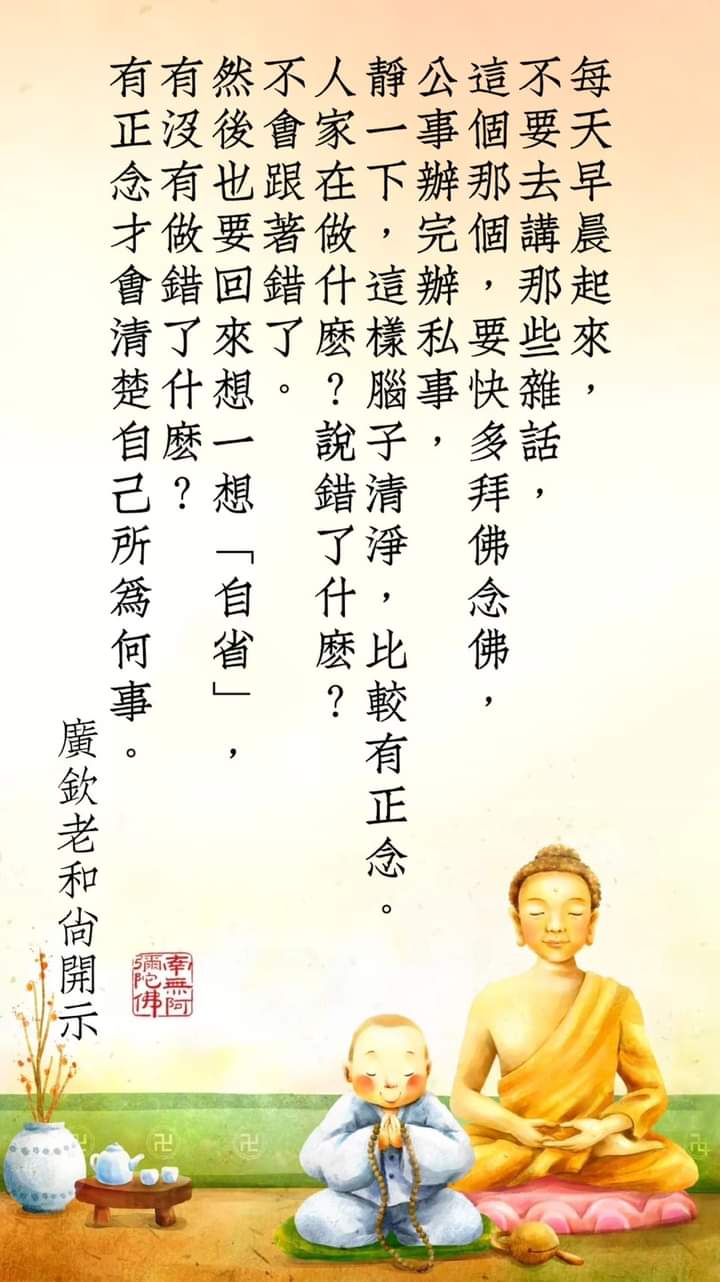 每天早晨起來，
不要去講那些雜話，
這個那個，要快多拜佛念佛，
公事辦完辦私事，
靜一下，這樣腦子清淨，比較有正念。
人家在做什麼？說錯了什麼？
不會跟著錯了。
然後也要回來想一想「自省」，
有沒有做錯了什麼？
有正念才會清楚自己所為何事。
廣欽老和尚開示
南無阿
彌陀佛
卍
卍
卍
卍